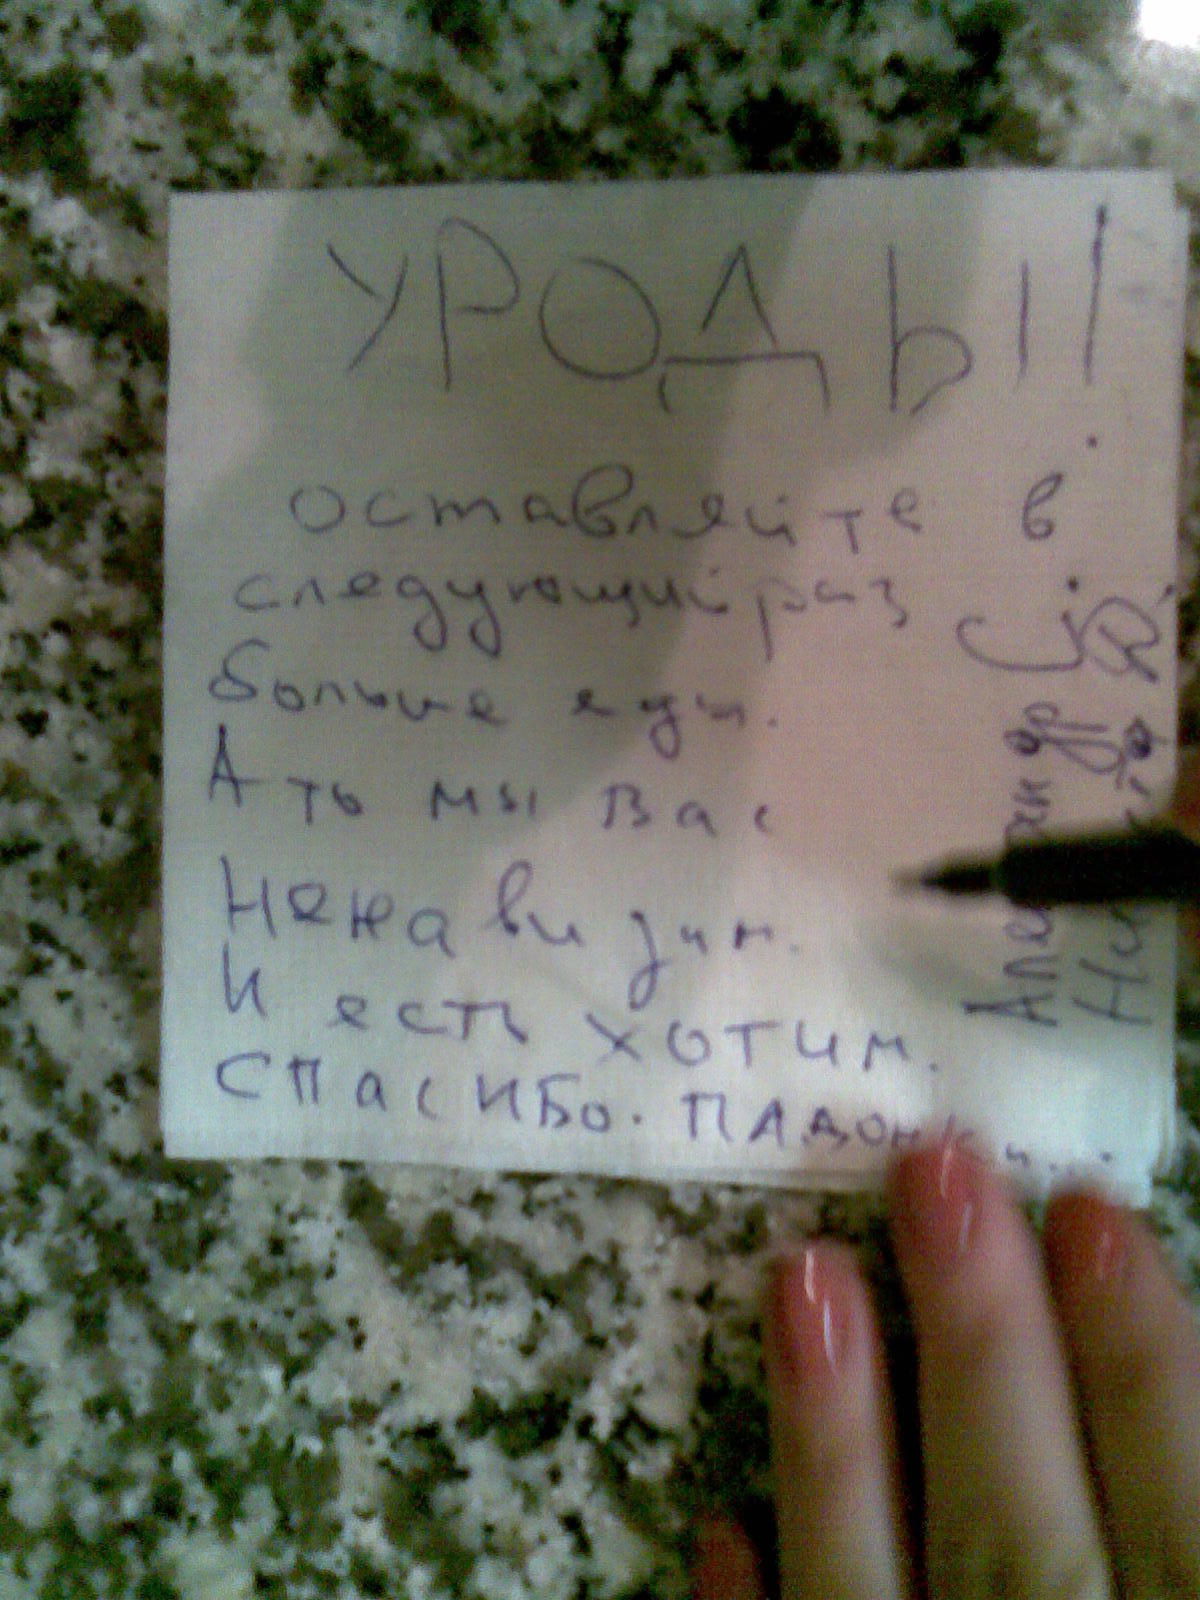 УРОДЫ!
оставляйте в
следующий раз
больше еды.
А ть мы вас
ненавидим.
И есть хотим.
СПАСИБО. ПАДОНКИ...
Александр